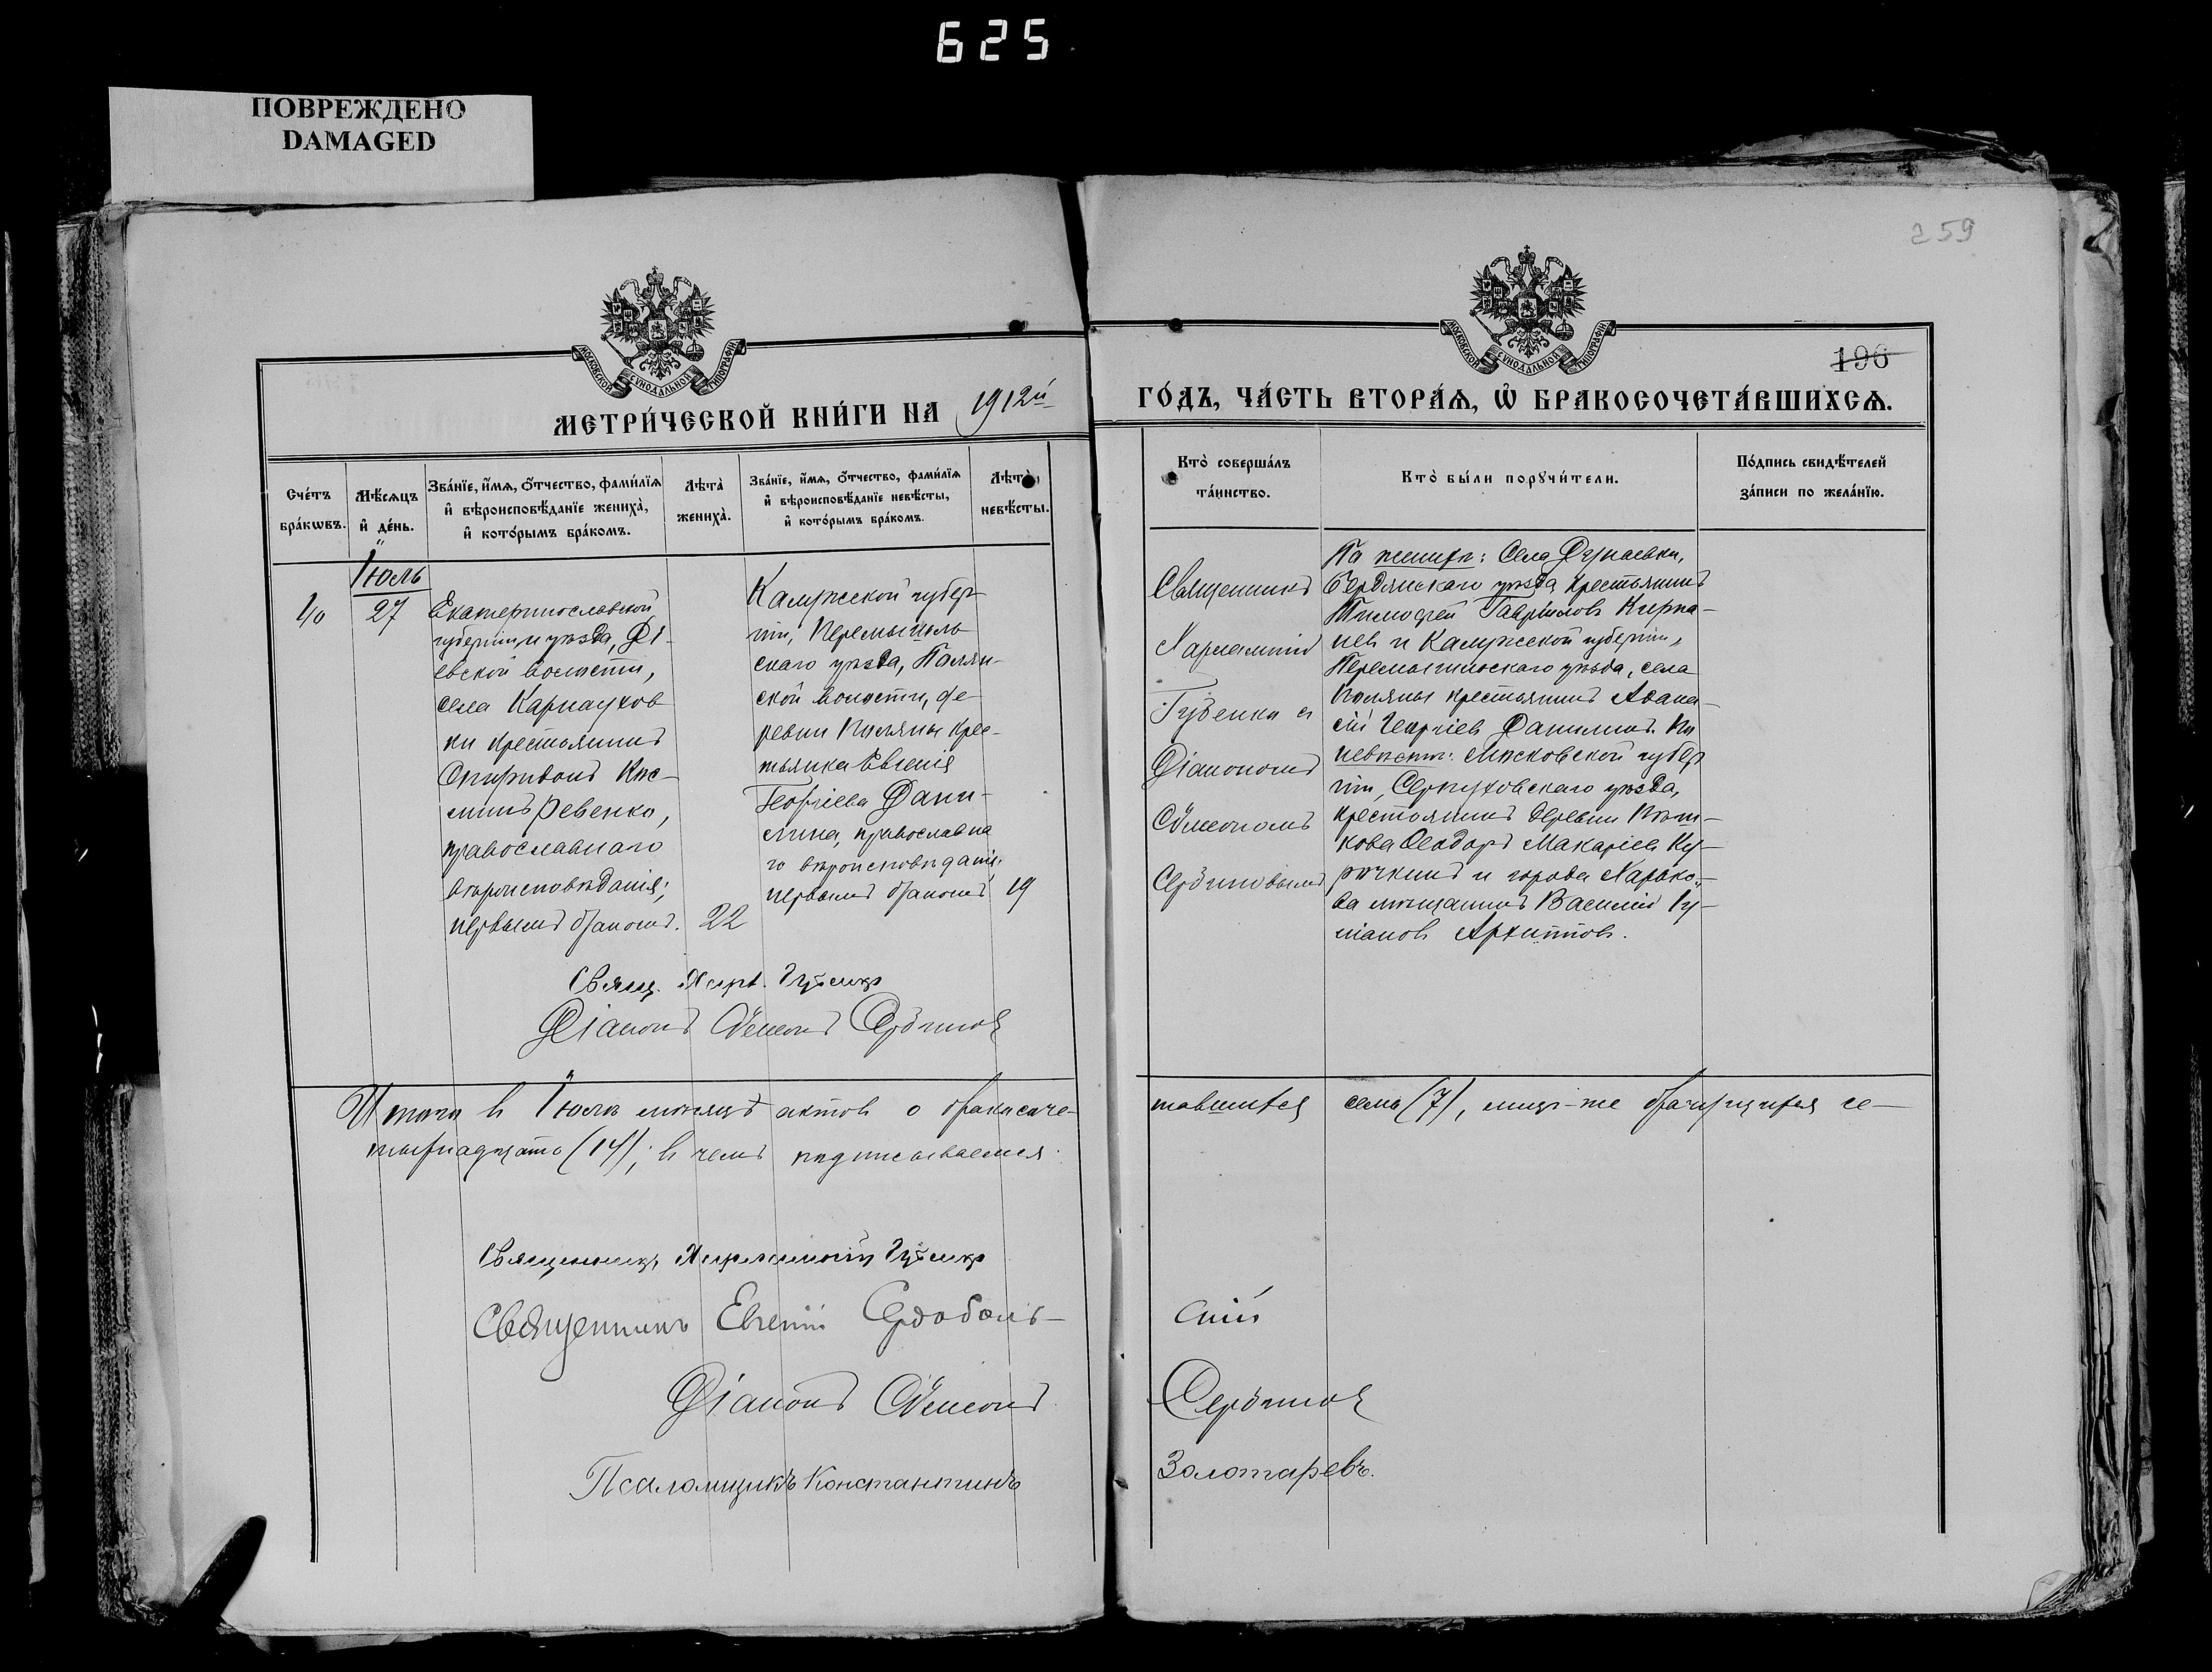 625
ПОВРЕЖДЕНО
DAMAGED
259
МОСКОВСКОЙ СѴНОДАЛЬНОЙ ТИПОГРАФІИ
МОСКОВСКОЙ СѴНОДАЛЬНОЙ ТИПОГРАФІИ
196
МЕТРИ́ЧЕСКОЙ КНИ́ГИ НА 1912й
ГО́ДЪ, ЧА́СТЬ ВТОРА́Ѧ, Ѡ҆ БРАКОСОЧЕТА́ВШИХСѦ.
Сче́тъ бра́кѡвъ.
Мѣ́сѧцъ и҆ де́нь.
Зва́нїе, и҆́мѧ, ѻ҆́тчество, фами́лїѧ
и҆ вѣроисповѣ́данїе жениха̀,
и҆ кото́рымъ бра́комъ.
Лѣта̀ жениха̀.
Зва́нїе, и҆́мѧ, ѻ҆́тчество, фами́лїѧ
и҆ вѣроисповѣ́данїе невѣ́сты,
и҆ кото́рымъ бра́комъ.
Лѣта̀ невѣ́сты.
Кто̀ соверша́лъ
та́инство.
Кто̀ бы́ли порꙋчи́тели.
По́дпись свидѣ́телей
за́писи по жела́нїю.
Іюль
40
27
Екатеринославской
губерніи и уѣзда, Ді-
евской волости,
села Карнаухов
ки крестьянинъ
Спиридонъ Кос-
минъ Ревенко,
православнаго
вѣроисповѣданія;
первымъ бракомъ.
22
Калужской губер-
ніи, Перемышль
скаго уѣзда, Полян-
ской волости, де
ревни Поляны крес-
тьянка Евгенія
Георгіева Дани-
лина, православна
го вѣроисповѣданія;
первымъ бракомъ
19
Священникъ
Харлампій
Губенко и
Діакономъ
Сѵмеономъ
Сербиновымъ
По женихѣ: Села
Бердянскаго уѣзда крестьянинъ
Тимофей Гавриловъ Кирпа-
невъ и Калужской губерніи,
Перемышльскаго уѣзда, села
Поляны крестьянинъ Аѳана-
сій Георгіевъ Данилинъ. По
невѣстѣ: Московской губер
ніи, Серпуховскаго уѣзда,
крестьянинъ деревни
кова Ѳеодоръ Макаріевъ Ку-
рочкинъ и города Харько-
ва мѣщанинъ Василій Іу-
ліановъ Архиповъ.
Свящ. Харл. Губенко
Діаконъ Сѵмеонъ Сербиновъ
Итого въ Іюлѣ мѣсяцѣ актовъ о бракосоче-
тавшихся семь (7), лицъ-же брачущихся че-
тырнадцать (14); въ чемъ подписываемся.
Священникъ Харлампій Губенко
Священникъ Евгеній Сердоболь-
скій
Діаконъ Сѵмеонъ
Сербиновъ
Псаломщикъ Константинъ
Золотаревъ.